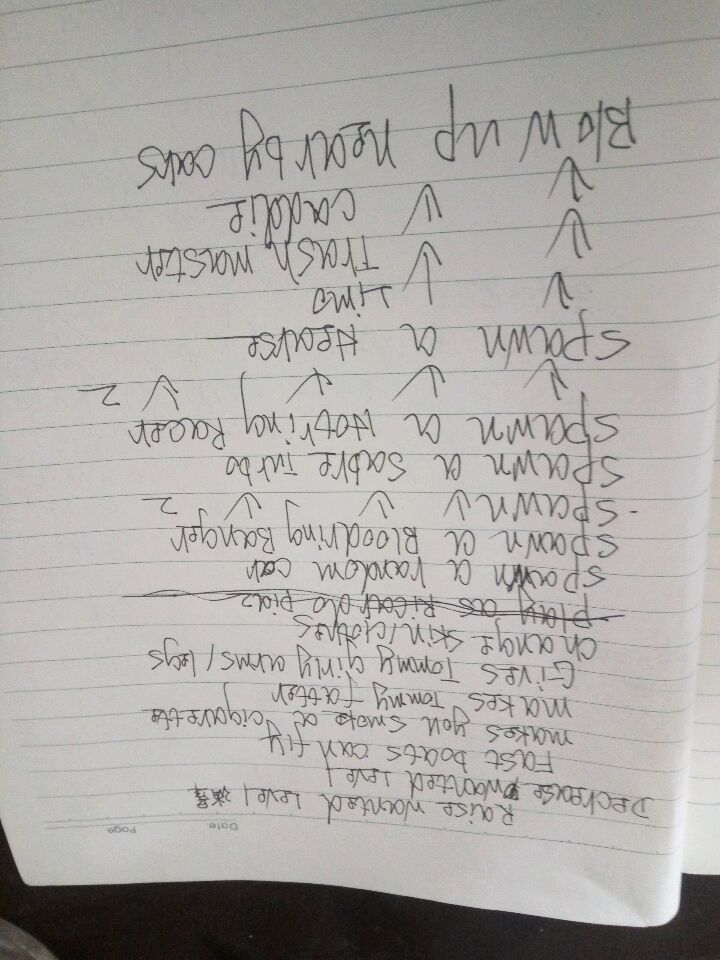 Date Page
Raise wanted level
Decrease wanted level
Fast boats can fly
makes you smoke a cigarette
makes Tommy fatter
Gives Tommy girly arms/legs
change skin/clothes
play as Ricardo Diaz
spawn a random car
spawn a Bloodring Banger
- spawn ↓ ↓ ↓ 2
spawn a sable turbo
spawn a Hotring Racer
↓ ↓ ↓ ↓ 2
spawn a Hearse
↓ ↓ Limo
↓ ↓ Trash master
↓ ↓ caddie
Blow up near by cars